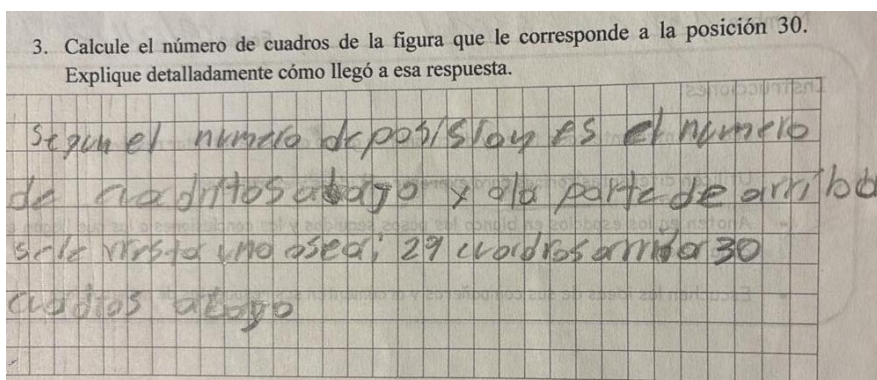 3. Calcule el número de cuadros de la figura que le corresponde a la posición 30.
Explique detalladamente cómo llegó a esa respuesta.
Segun el numero de posision es el numero
de cuadritos abajo y ala parte de arriba
sele resta uno osea; 29 cuadros arriba 30
cuadros abajo